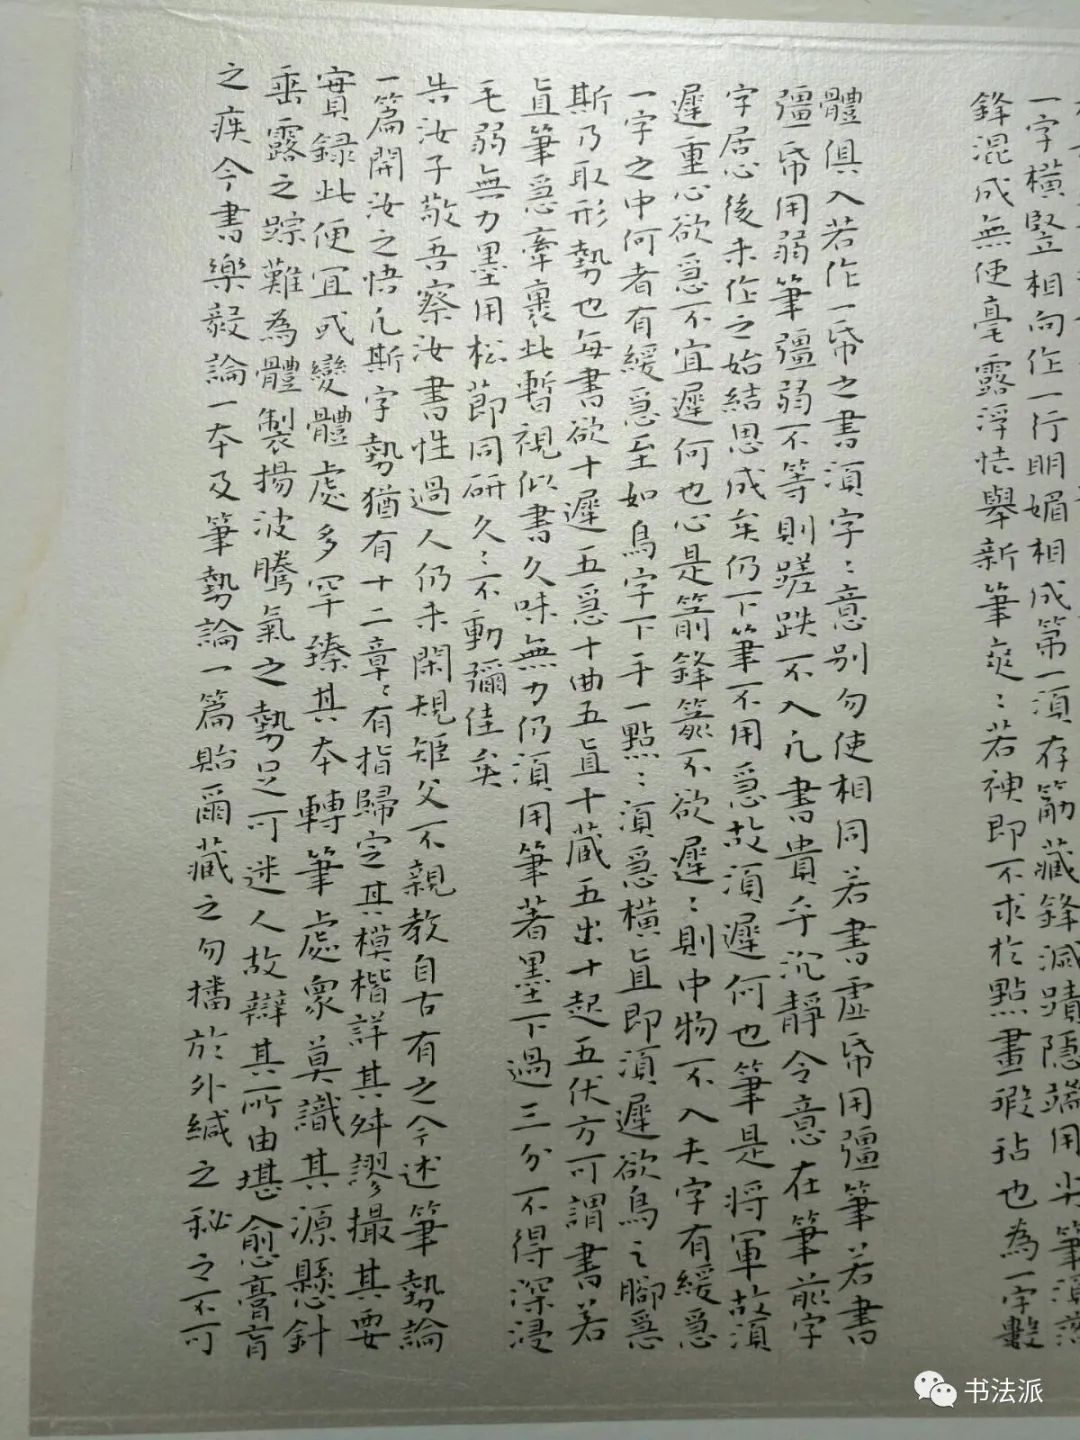 一字橫豎相向作一行明媚相成第一須存筋藏鋒滅蹟隱端用尖筆須落
鋒混成無使毫露浮怯舉新筆爽〻若神即不求於點畫瑕玷也為一字數
體俱入若作一帋之書須字〻意別勿使相同若書虛帋用彊筆若書
彊帋用弱筆彊弱不等則蹉跌不入凡書貴乎沉靜令意在筆前字
字居心後未作之始結思成矣仍下筆不用急故須遲何也筆是將軍故須
遲重心欲急不宜遲何也心是箭鋒箭不欲遲〻則中物不入夫字有緩急
一字之中何者有緩急至如烏字下手一點〻須急橫直即須遲欲烏之腳急
斯乃取形勢也每書欲十遲五急十曲五直十藏五出十起五伏方可謂書若
直筆急牽裹此暫視似書久味無力仍須用筆著墨下過三分不得深浸
毛弱無力墨用松節同研久〻不動彌佳矣
告汝子敬吾察汝書性過人仍未閑規矩父不親教自古有之今述筆勢論
一篇開汝之悟凡斯字勢猶有十二章〻有指歸定其模楷詳其舛謬撮其要
實録此便宜或變體處多罕臻其本轉筆處衆莫識其源懸針
垂露之踪難為體製揚波騰氣之勢足可迷人故辯其所由堪愈膏肓
之疾今書樂毅論一本及筆勢論一篇貽爾藏之勿播於外緘之秘之不可
书法派